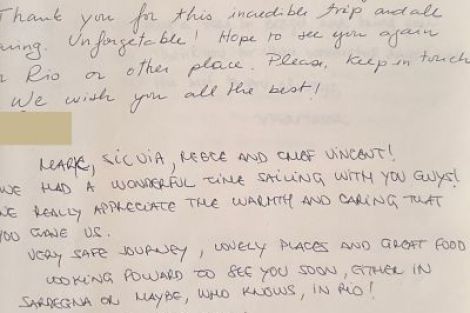 Thank you for this incredible trip and all
ning. Unforgetable! Hope to see you again
Rio or other place. Please, keep in touch
We wish you all the best!
MARK, SILVIA, REECE AND CHEF VINCENT!
WE HAD A WONDERFUL TIME SAILING WITH YOU GUYS!
WE REALLY APPRECIATE THE WARMTH AND CARING THAT
YOU GAVE US.
VERY SAFE JOURNEY, LOVELY PLACES AND GREAT FOOD
LOOKING FOWARD TO SEE YOU SOON, EITHER IN
SARDEGNA OR MAYBE, WHO KNOWS, IN RIO!